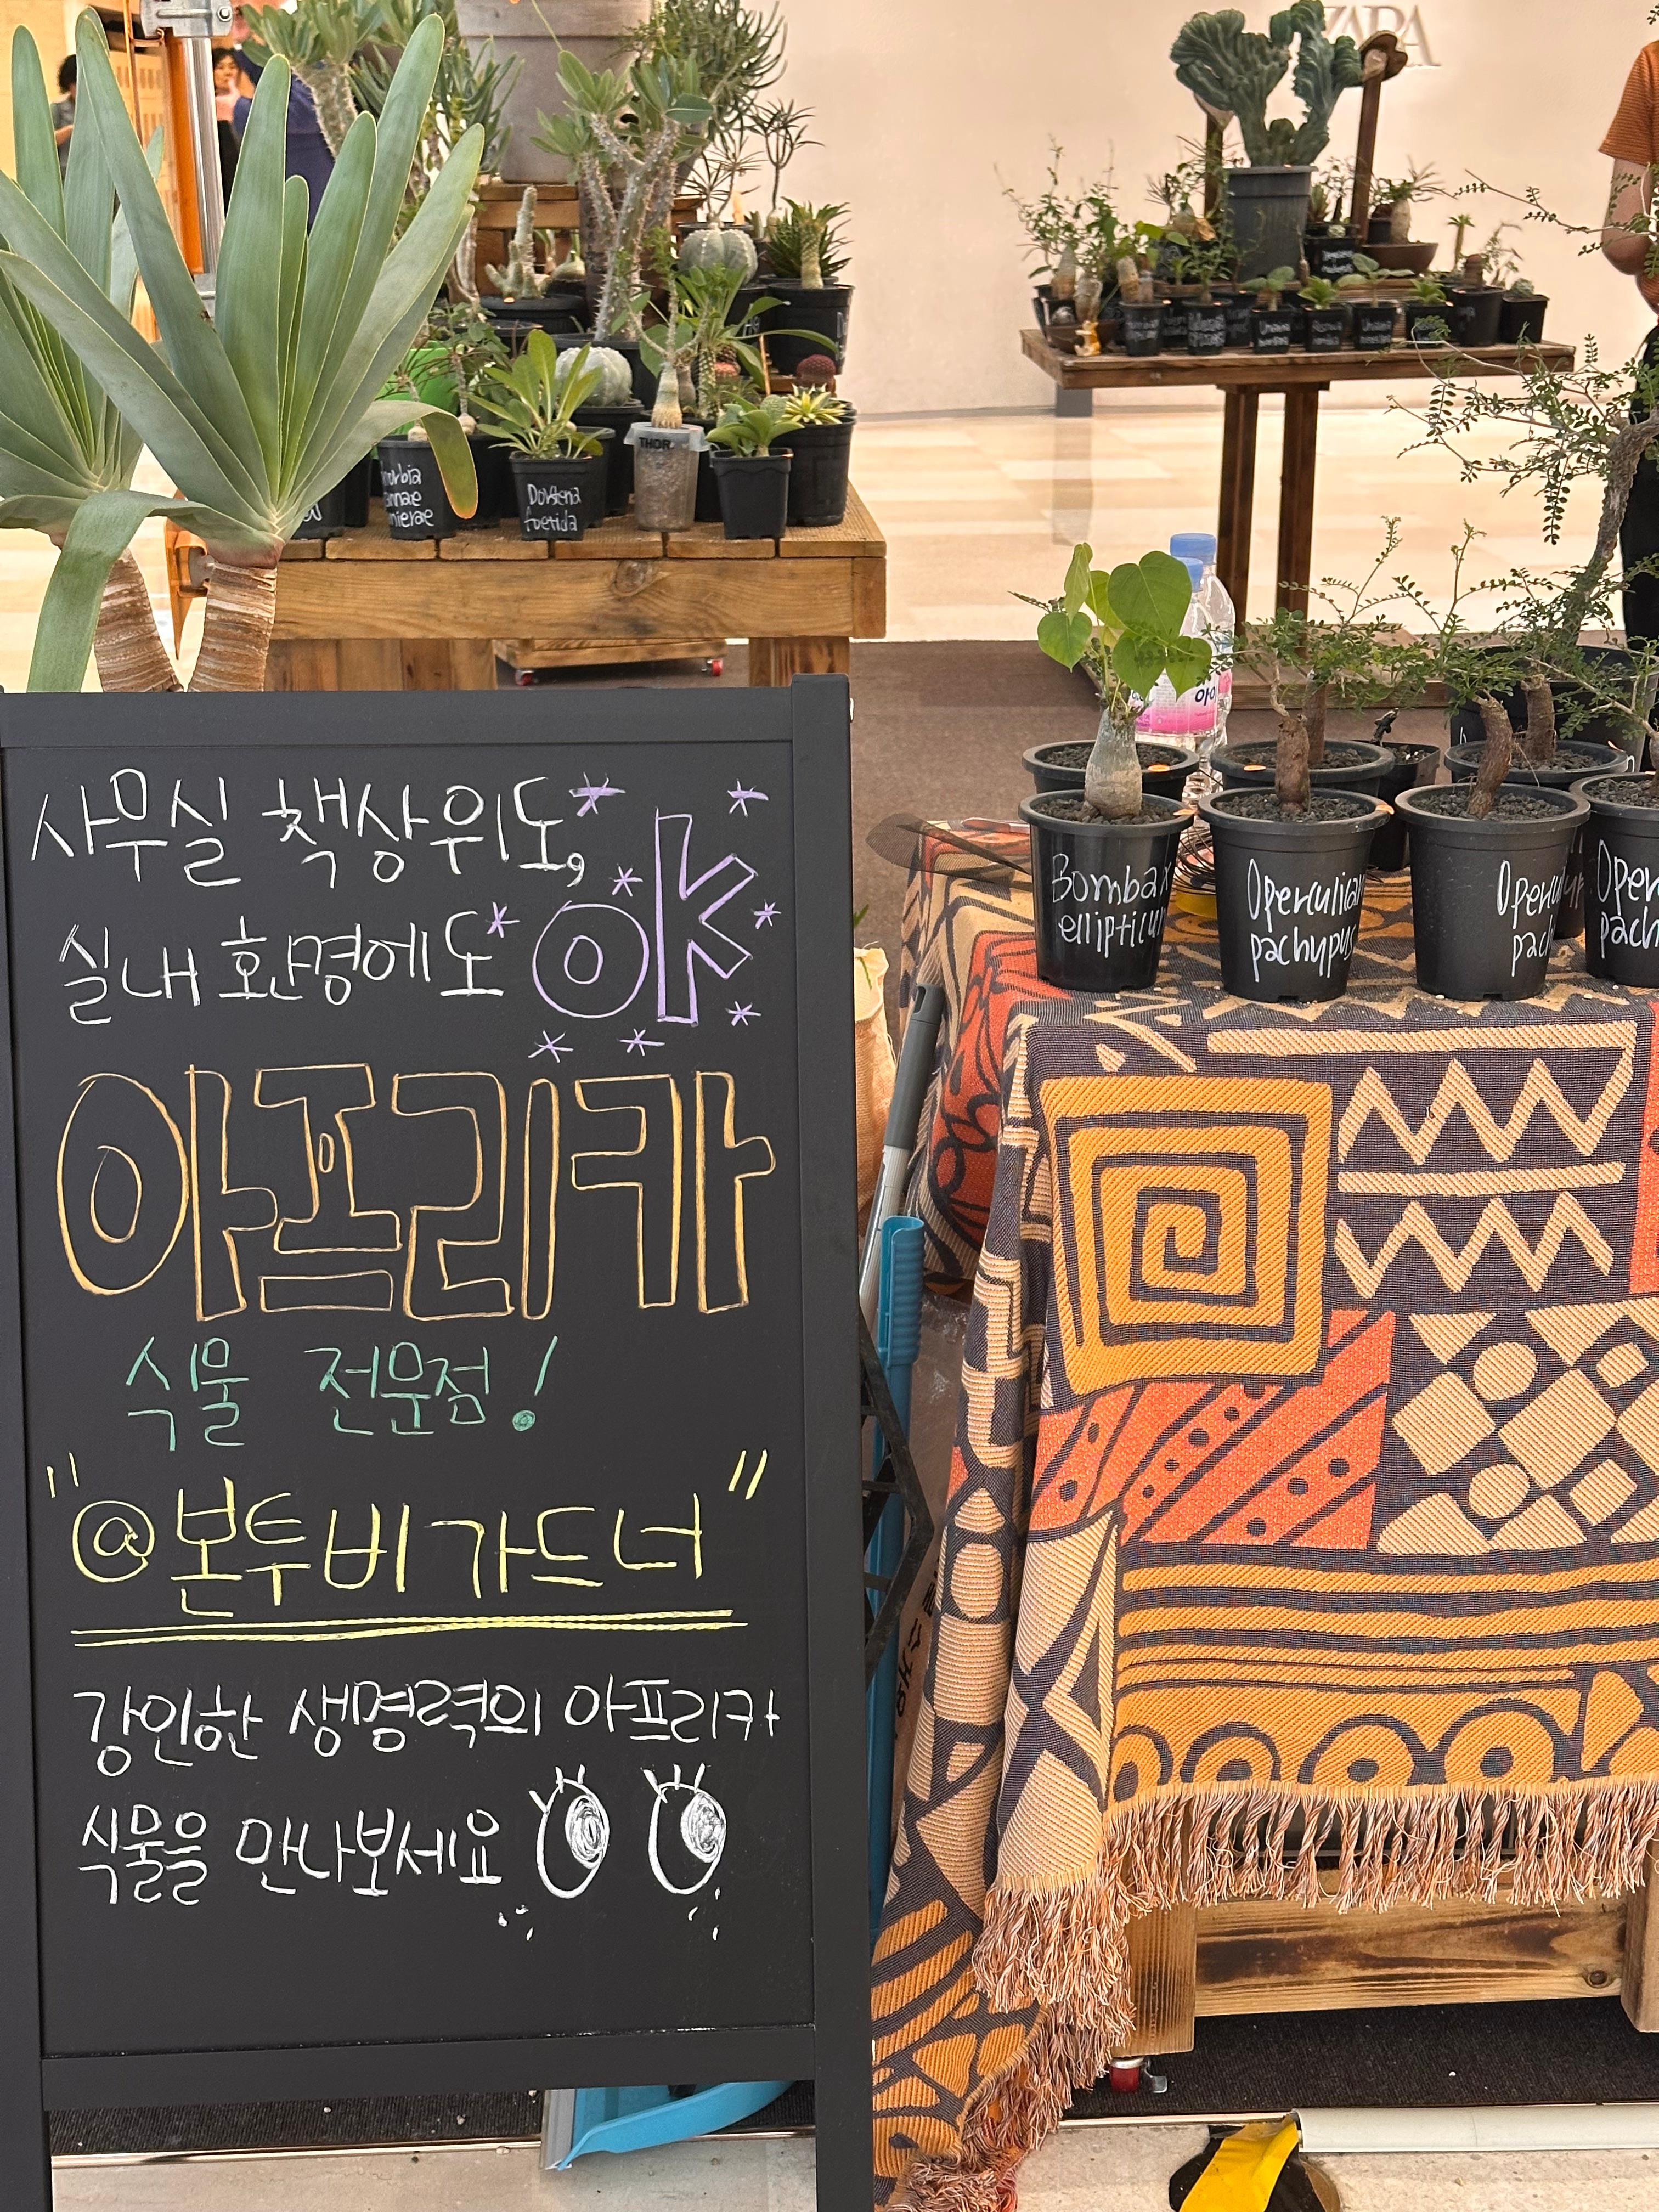 사무실 책상위도,
실내 환경에도 OK
아프리카
식물 전문점!
"@본투비가드너"
강인한 생명력의 아프리카
식물을 만나보세요
THOR
Dorstenia
foetida
Bombax
ellipticum
Operculicarya
pachypus